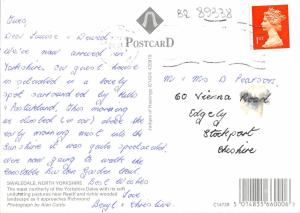 BR 89338
POSTCARD
1ST
We've now arrived in
Yorkshire, our house
is situated in a lovely
spot surrounded by hills
This morning
we climbed to above the
early morning mist into the
Sunshine it was quite spectacular.
we're now going to wash the
Best Wishes
Love
Beryl + Christine.
Mr + Mrs D Pearson,
60 Vienna Road
Edgely
Stockport
Cheshire
SWALEDALE, NORTH YORKSHIRE
The most northerly of the Yorkshire Dales with its soft
undulating pastures near Reeth and richly wooded
lower end as it approaches Richmond
Photograph by Alan Curtis
5 014835 660006